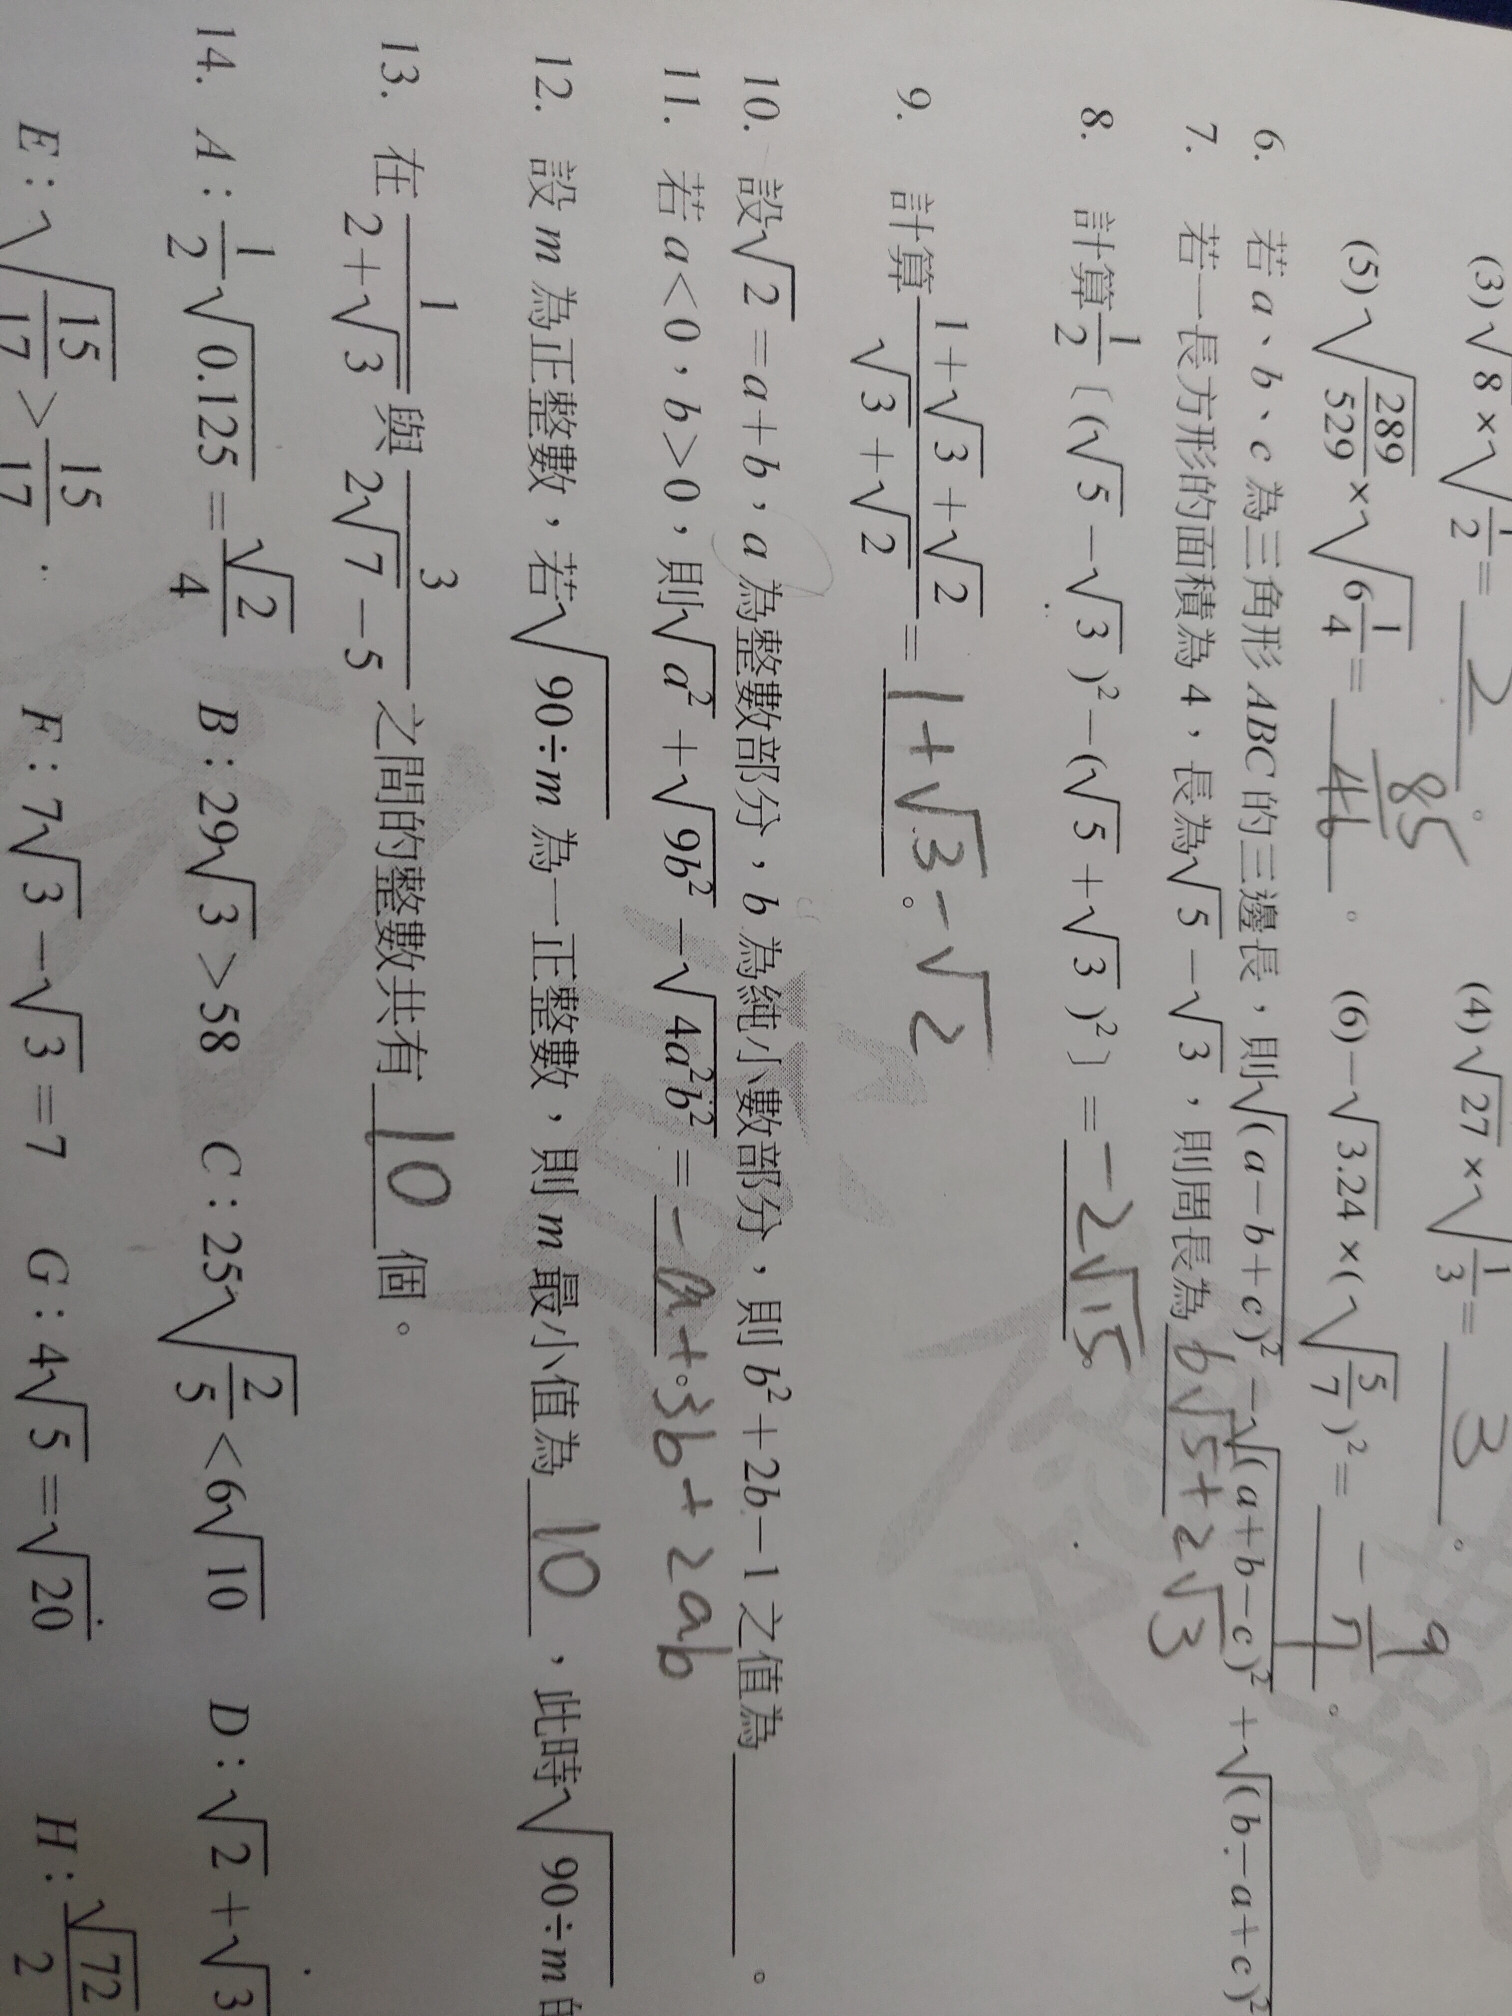 (3) √8 × √(1/2) = 2 。 (4) √27 × √(1/3) = 3 。
(5) √(289/529) × √(6 1/4) = 85/46 。 (6) −√3.24 × (√(5/7))² = − 9/7 。
6. 若 a、b、c 為三角形 ABC 的三邊長，則√(a−b+c)² −√(a+b−c)² +√(b−a+c)²
7. 若一長方形的面積為 4，長為√5 −√3 ，則周長為 6√5+2√3
8. 計算 1/2〔(√5 −√3 )²−(√5 +√3 )²〕= −2√15 。
9. 計算 (1+√3 +√2)/(√3 +√2) = 1+√3−√2 。
10. 設√2 =a+b，a 為整數部分，b 為純小數部分，則 b²+2b−1 之值為 。
11. 若 a<0，b>0，則√a² +√9b² −√4a²b² = −a+3b+2ab 。
12. 設 m 為正整數，若√90÷m 為一正整數，則 m 最小值為 10 ，此時√90÷m 的
13. 在 1/(2+√3) 與 3/(2√7 −5) 之間的整數共有 10 個。
14. A：1/2 √0.125 = √2/4 B：29√3 >58 C：25√(2/5) <6√10 D：√2 +√3
E：√(15/17) > 15/17 F：7√3 −√3 =7 G：4√5 =√20 H：√72/2